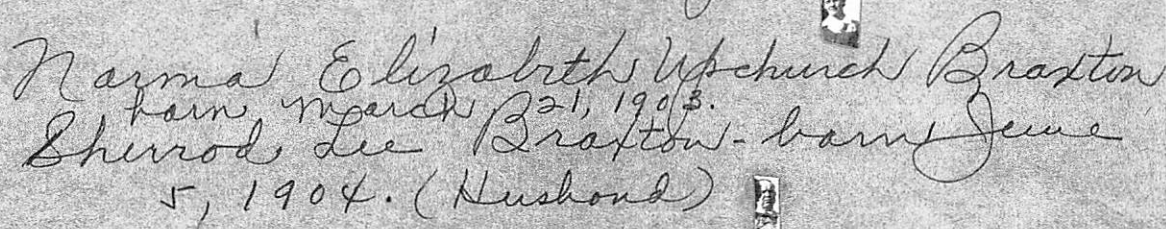 Norma Elizabeth Upchurch Braxton
born March 21, 1903.
Sherrod Lee Braxton - born June
5, 1904. (Husband)